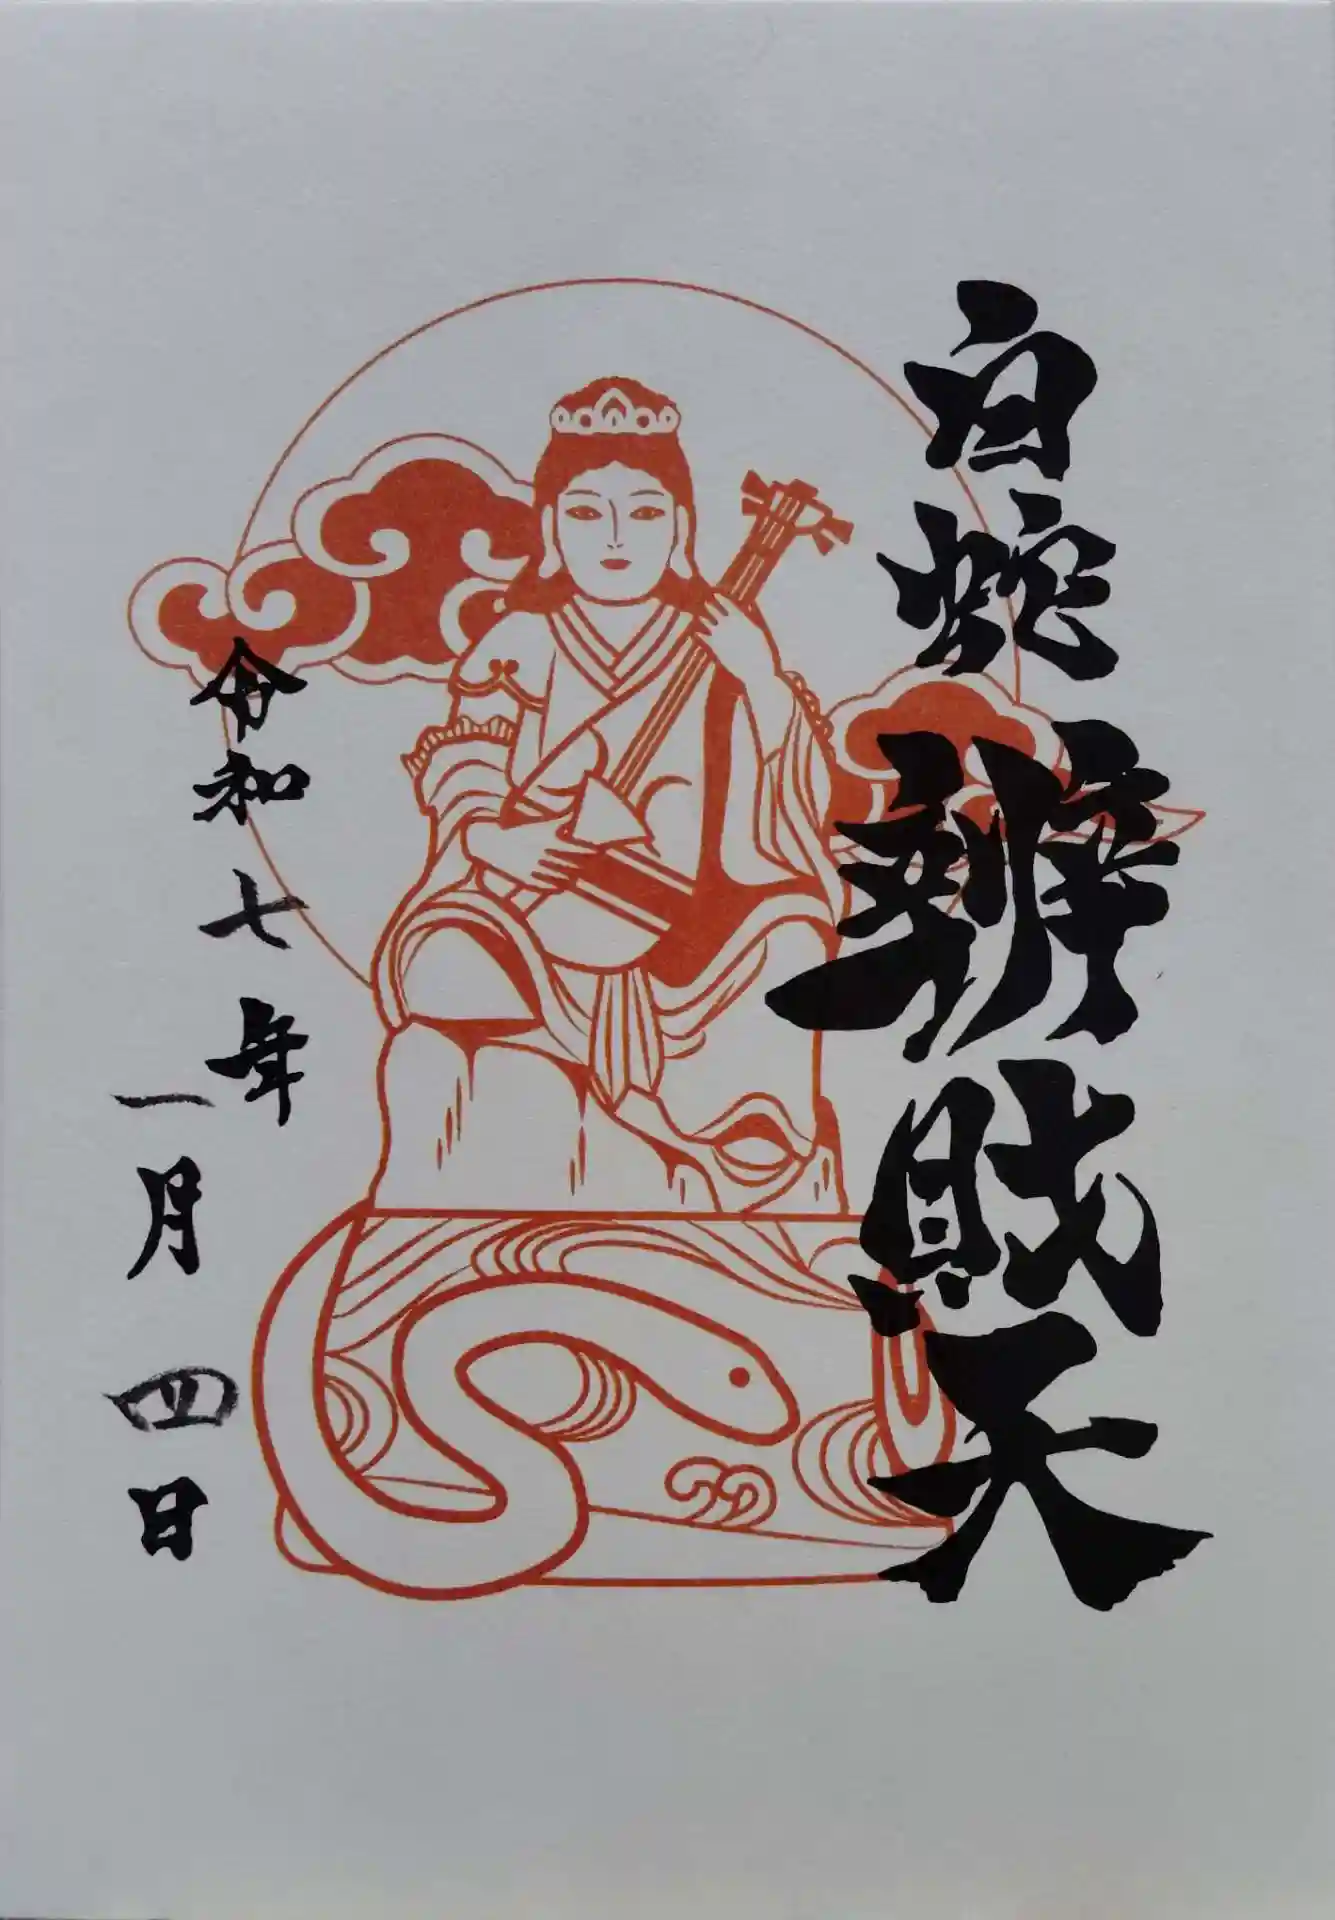 白蛇辨財天
令和七年
一月四日